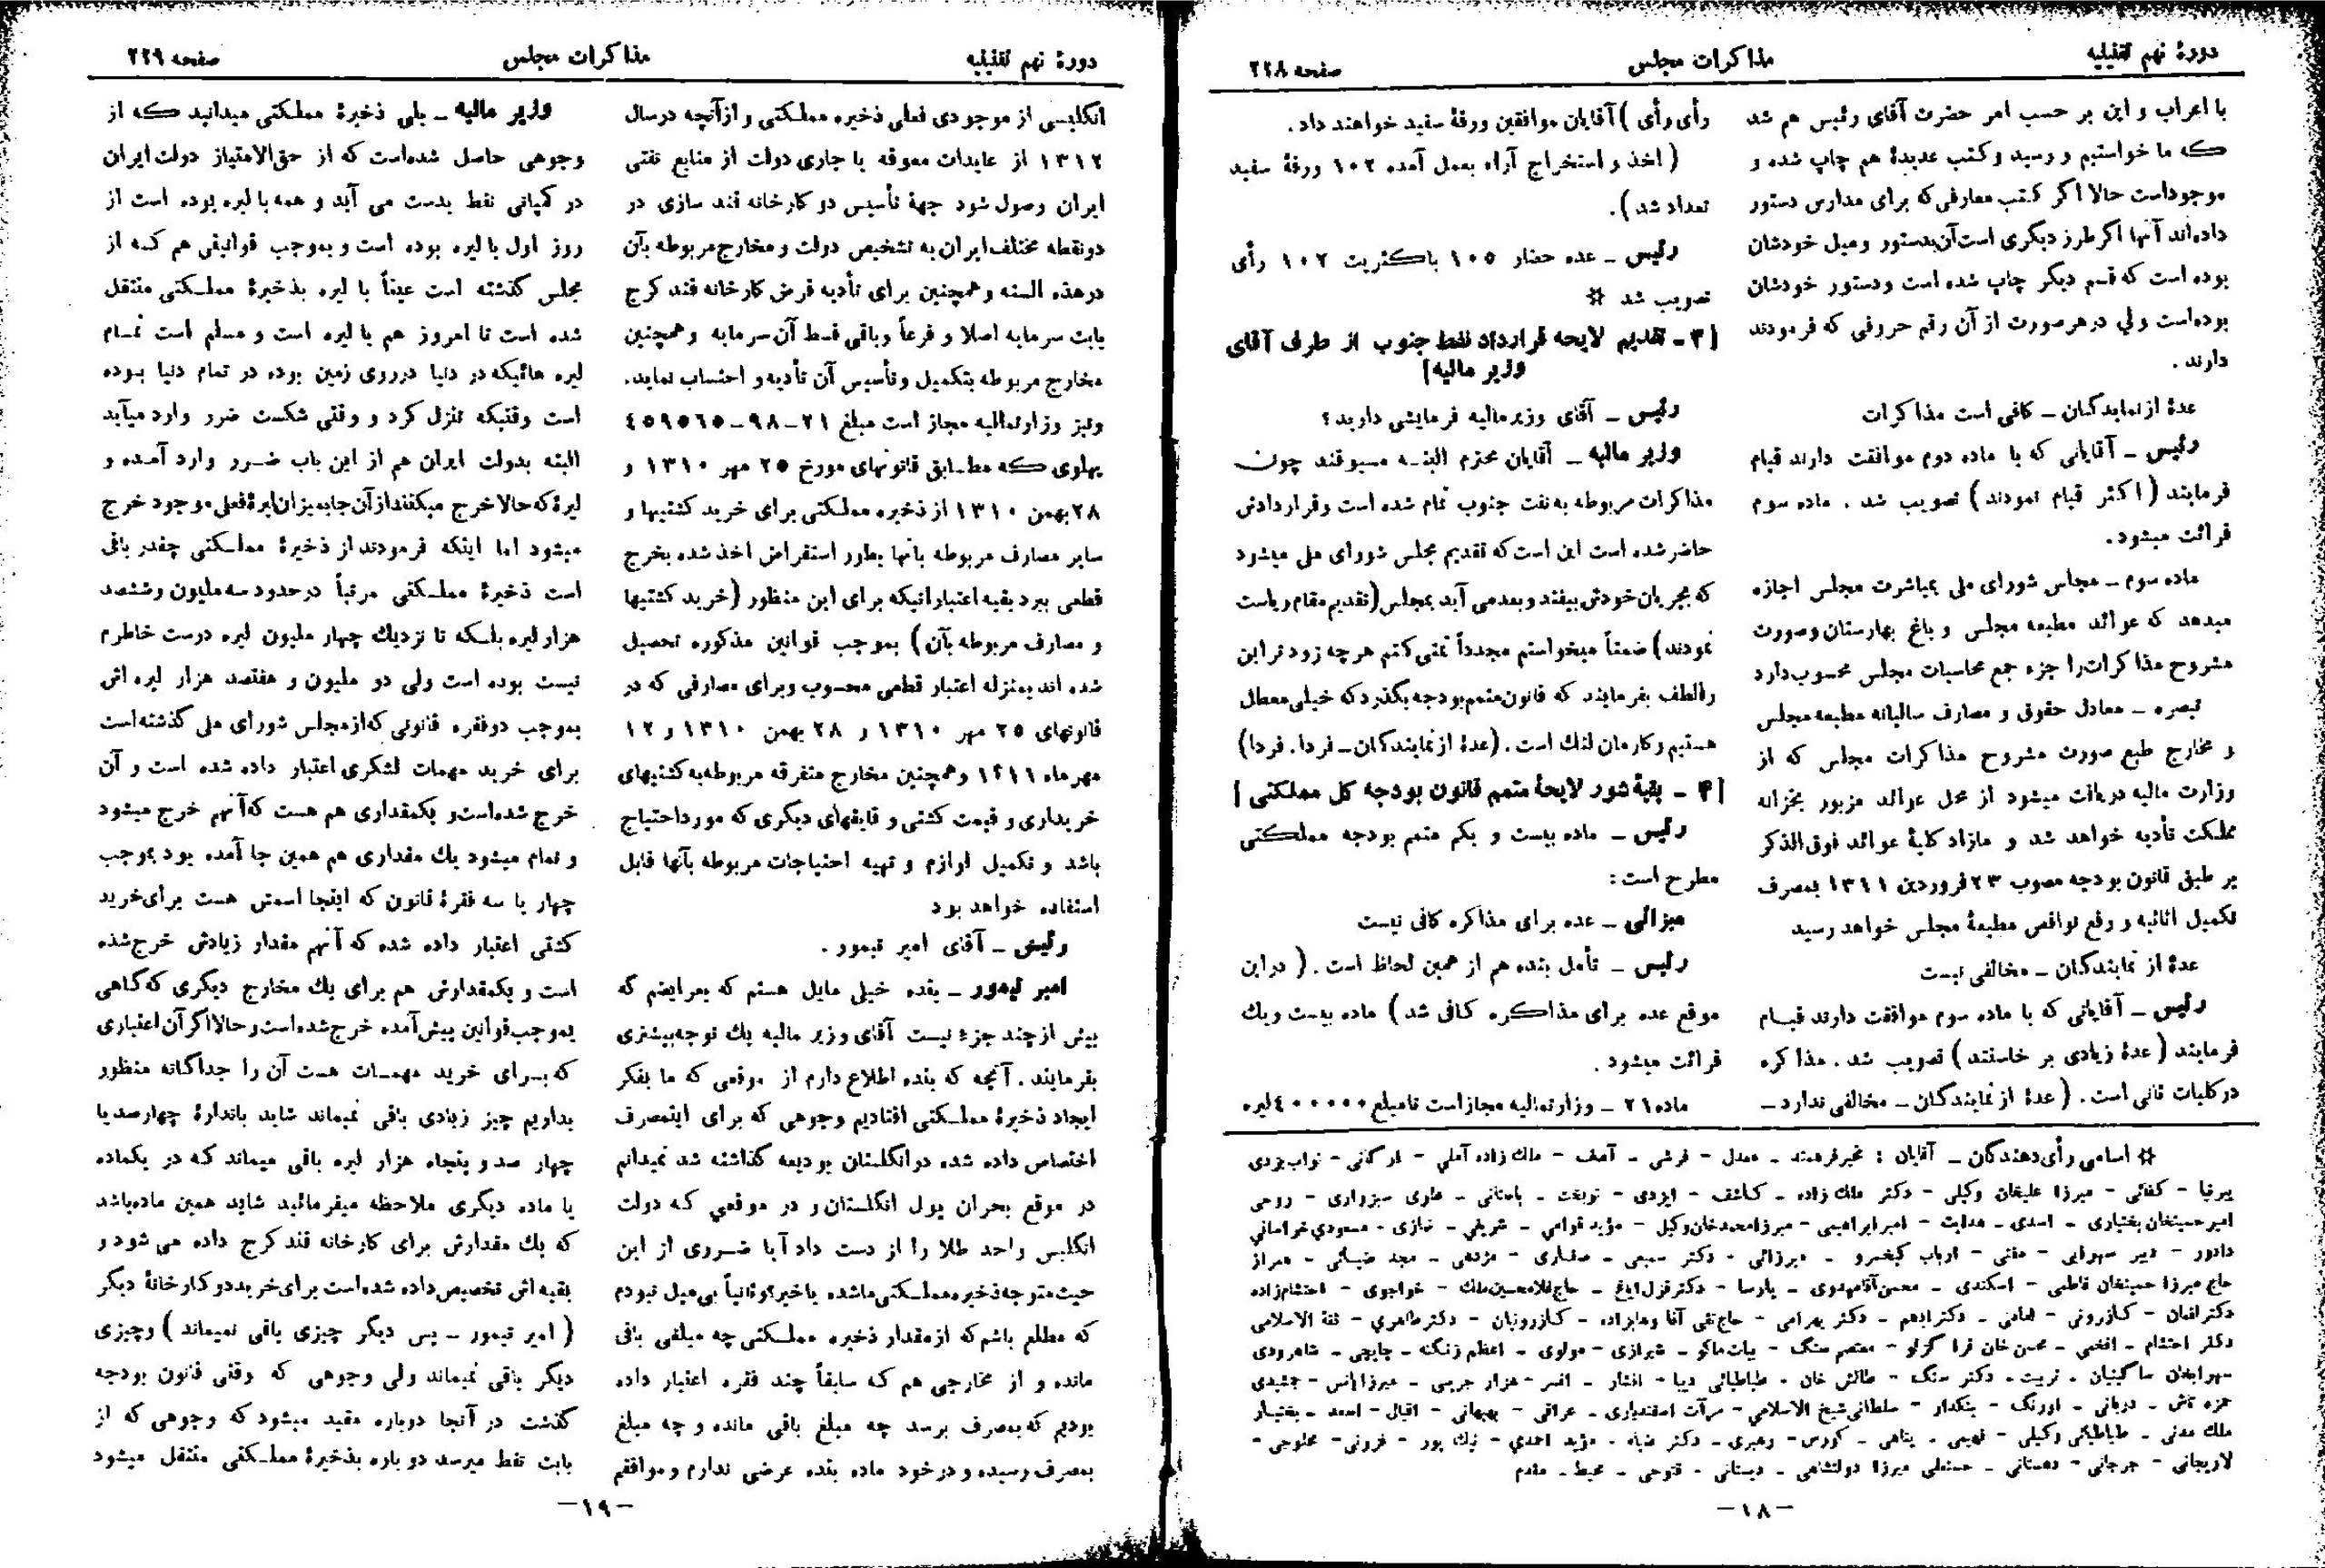 دورهٔ نهم تقنینیه
مذاکرات مجلس
صفحه ۲۲۸
با اعراب و این بر حسب امر حضرت آقای رئیس هم شد
که ما خواستیم و رسید و کتب عدیدهٔ هم چاپ شده و
موجود است حالا اگر کتب معارفی که برای مدارس دستور
داده‌اند آنها اگر طرز دیگری است آن بدستور و میل خودشان
بوده است که قسم دیگر چاپ شده است و دستور خودشان
بوده است ولی در هر صورت از آن رقم حروفی که فرمودند
دارند .
عدهٔ از نمایندگان ـ کافی است مذاکرات
رئیس ـ آقایانی که با ماده دوم موافقت دارند قیام
فرمایند (اکثر قیام نمودند) تصویب شد . ماده سوم
قرائت میشود.
ماده سوم ـ مجلس شورای ملی بمباشرت مجلس اجازه
میدهد که عوائد مطبعه مجلس و باغ بهارستان و صورت
مشروح مذاکرات را جزء جمع محاسبات مجلس محسوب دارد
تبصره ـ معادل حقوق و مصارف سالیانه مطبعه مجلس
و مخارج طبع صورت مشروح مذاکرات مجلس که از
وزارت مالیه دریافت میشود از محل عوائد مزبور بخزانه
مملکت تأدیه خواهد شد و مازاد کلیهٔ عوائد فوق‌الذکر
بر طبق قانون بودجه مصوب ۲۳ فروردین ۱۳۱۱ بمصرف
تکمیل اثاثیه و رفع نواقص مطبعهٔ مجلس خواهد رسید
عدهٔ از نمایندگان ـ مخالفی نیست
رئیس ـ آقایانی که با ماده سوم موافقت دارند قیام
فرمایند (عدهٔ زیادی بر خاستند) تصویب شد . مذاکره
در کلیات ثانی است . (عدهٔ از نمایندگان ـ مخالفی ندارد ـ
رأی رأی) آقایان موافقین ورقهٔ سفید خواهند داد .
(اخذ و استخراج آراء بعمل آمده ۱۰۲ ورقهٔ سفید
تعداد شد) .
رئیس ـ عده حضار ۱۰۵ باکثریت ۱۰۲ رأی
تصویب شد *
[۳ـ تقدیم لایحه قرارداد نفط جنوب از طرف آقای
وزیر مالیه]
رئیس ـ آقای وزیر مالیه فرمایشی دارید ؟
وزیر مالیه ـ آقایان محترم البته مسبوقند چون
مذاکرات مربوطه به نفت جنوب تمام شده است و قراردادش
حاضر شده است این است که تقدیم مجلس شورای ملی میشود
که بجریان خودش بیفتد و بعد می آید بمجلس (تقدیم مقام ریاست
نمودند) ضمناً میخواستم مجدداً تمنی کنم هر چه زودتر این
را لطف بفرمایند که قانون متمم بودجه بگذرد که خیلی معطل
هستیم و کارمان لنگ است . (عدهٔ از نمایندگان ـ فردا . فردا)
[۴ ـ بقیهٔ شور لایحهٔ متمم قانون بودجه کل مملکتی]
رئیس ـ ماده بیست و یکم متمم بودجه مملکتی
مطرح است :
میزائی ـ عده برای مذاکره کافی نیست
رئیس ـ تأمل بنده هم از همین لحاظ است . (در این
موقع عده برای مذاکره کافی شد) ماده بیست و یک
قرائت میشود .
ماده ۲۱ ـ وزارت مالیه مجاز است تا مبلغ ۴۰۰۰۰۰ لیره
* اسامی رأی دهندگان ـ آقایان : مخبر فرهمند ـ معدل - قرشی ـ آصف - ملک زاده آملی - نواب یزدی
پیرنیا - کفائی - میرزا علیخان وکیلی - دکتر ملک زاده ـ کاشف - ایزدی - نوبخت ـ باستانی ـ طاری سبزواری - روحی
امیر حسینخان بختیاری ـ اسدی ـ هدایت - امیر ابراهیمی - میرزا محمدخان وکیل - مؤید قوامی - شریفی - نمازی - مسعودی خراسانی
دادور - دبیر سهرابی - مفتی - ارباب کیخسرو ـ میرزائی ـ دکتر سمیعی - صفاری - مژدهی ـ مجد ضیائی -
حاج میرزا حسینخان فاطمی - اسکندری ـ محسن آقا مهدوی ـ پارسا - دکتر قزل ایاغ ـ حاج غلامحسین ملک - خواجوی - احتشام زاده
دکتر لقمان - کازرونی - امامی ـ دکتر ادهم ـ دکتر بهرامی - حاج تقی آقا وهاب زاده ـ کازرونیان - دکتر طاهری - ثقة الاسلامی
دکتر احتشام ـ افخمی - محسن خان قراگزلو - معتصم سنگ - بیات ماکو ـ شیرازی - مولوی ـ اعظم زنگنه ـ چایچی ـ شاهرودی
سهرابخان ساگینیان ـ تربیت ـ دکتر سنگ - طالش خان ـ طباطبائی دیبا - افشار ـ افسر - هزار جریبی ـ میرزا یانس - جمشیدی
حمزه تاش ـ دربانی ـ اورنگ - بنکدار - سلطانی شیخ الاسلامی - مرآت اسفندیاری ـ عراقی - بهبهانی - اقبال - اسعد ـ بختیار
ملک مدنی ـ طباطبائی وکیلی - فهیمی ـ پناهی ـ کورس - رهبری ـ دکتر ضیاء ـ مؤید احمدی - نیک پور - قزونی - مخلوجی -
لاریجانی - جرجانی - دهستانی ـ حسنعلی میرزا دولتشاهی ـ دبستانی - فتوحی ـ محیط ـ مقدم
ـ۱۸ـ
دورهٔ نهم تقنینیه
مذاکرات مجلس
صفحه ۲۲۹
انگلیسی از موجودی فعلی ذخیره مملکتی و از آنچه در سال
۱۳۱۲ از عایدات معوقه یا جاری دولت از منابع نفتی
ایران وصول شود جهة تأسیس دو کارخانه قند سازی در
دو نقطه مختلف ایران به تشخیص دولت و مخارج مربوطه بآن
در هذه السنه و همچنین برای تأدیه قرض کارخانه قند کرج
بابت سرمایه اصلا و فرعاً و باقی قسط آن سرمایه و همچنین
مخارج مربوطه بتکمیل و تأسیس آن تأدیه و احتساب نماید.
و نیز وزارت مالیه مجاز است مبلغ ۲۱-۹۸-۴۵۹۵۶۵
پهلوی که مطابق قانونهای مورخ ۲۵ مهر ۱۳۱۰ و
۲۸ بهمن ۱۳۱۰ از ذخیره مملکتی برای خرید کشتیها و
سایر مصارف مربوطه بآنها بطور استقراض اخذ شده بخرج
قطعی ببرد بقیه اعتباراتیکه برای این منظور (خرید کشتیها
و مصارف مربوطه بآن) بموجب قوانین مذکوره تحصیل
شده اند بمنزله اعتبار قطعی محسوب و برای مصارفی که در
قانونهای ۲۵ مهر ۱۳۱۰ و ۲۸ بهمن ۱۳۱۰ و ۱۲
مهر ماه ۱۳۱۱ و همچنین مخارج متفرقه مربوطه به کشتیهای
خریداری و قیمت کشتی و قایقهای دیگری که مورد احتیاج
باشد و تکمیل لوازم و تهیه احتیاجات مربوطه بآنها قابل
استفاده خواهد بود
رئیس ـ آقای امیر تیمور .
امیر تیمور ـ بنده خیلی مایل هستم که بعرایضم که
بیش از چند جزء نیست آقای وزیر مالیه یک توجه بیشتری
بفرمایند . آنچه که بنده اطلاع دارم از موقعی که ما بفکر
ایجاد ذخیرهٔ مملکتی افتادیم وجوهی که برای اینمصرف
اختصاص داده شده در انگلستان بودیعه گذاشته شد نمیدانم
در موقع بحران پول انگلستان و در موقعی که دولت
انگلیس واحد طلا را از دست داد آیا ضرری از این
حیث متوجه ذخیره مملکتی ما شده یا خیر؟ و ثانیاً بی میل نبودم
که مطلع باشم که از مقدار ذخیره مملکتی چه مبلغی باقی
مانده و از مخارجی هم که سابقاً چند فقره اعتبار داده
بودیم که بمصرف برسد چه مبلغ باقی مانده و چه مبلغ
بمصرف رسیده و در خود ماده بنده عرضی ندارم و موافقم
وزیر مالیه ـ بلی ذخیرهٔ مملکتی میدانید که از
وجوهی حاصل شده‌است که از حق‌الامتیاز دولت ایران
در کمپانی نفط بدست می آید و همه با لیره بوده است از
روز اول با لیره بوده است و بموجب قوانینی هم که از
مجلس گذشته است عیناً با لیره بذخیرهٔ مملکتی منتقل
شده است تا امروز هم با لیره است و مسلم است تمام
لیره هائیکه در دنیا در روی زمین بوده در تمام دنیا بوده
است وقتیکه تنزل کرد و وقتی شکست ضرر وارد میآید
البته بدولت ایران هم از این باب ضرر وارد آمده و
لیرهٔ که حالا خرج میکنند از آن جا بمیزان لیرهٔ فعلی موجود خرج
میشود اما اینکه فرمودند از ذخیرهٔ مملکتی چقدر باقی
است ذخیرهٔ مملکتی مرتباً در حدود سه ملیون و ششصد
هزار لیره بلکه تا نزدیک چهار ملیون لیره درست خاطرم
نیست بوده است ولی دو ملیون و هفتصد هزار لیره اش
بموجب دو فقره قانونی که از مجلس شورای ملی گذشته است
برای خرید مهمات لشکری اعتبار داده شده است و آن
خرج شده‌است و یکمقداری هم هست که آنهم خرج میشود
و تمام میشود یک مقداری هم همین جا آمده بود بموجب
چهار یا سه فقرهٔ قانون که اینجا اسمش هست برای خرید
کشتی اعتبار داده شده که آنهم مقدار زیادش خرج شده
است و یکمقدارش هم برای یک مخارج دیگری که گاهی
بموجب قوانین پیش آمده خرج شده‌است و حالا اگر آن اعتباری
که برای خرید مهمات هست آن را جداگانه منظور
بداریم چیز زیادی باقی نمیماند شاید باندازهٔ چهارصد یا
چهار صد و پنجاه هزار لیره باقی میماند که در یکماده
یا ماده دیگری ملاحظه میفرمائید شاید همین ماده باشد
که یک مقدارش برای کارخانه قند کرج داده می شود و
بقیه اش تخصیص داده شده‌است برای خرید دو کارخانهٔ دیگر
(امیر تیمور ـ پس دیگر چیزی باقی نمیماند) و چیزی
دیگر باقی نمیماند ولی وجوهی که وقتی قانون بودجه
گذشت در آنجا دوباره مقید میشود که وجوهی که از
بابت نفط میرسد دوباره بذخیرهٔ مملکتی منتقل میشود
ـ۱۹ـ